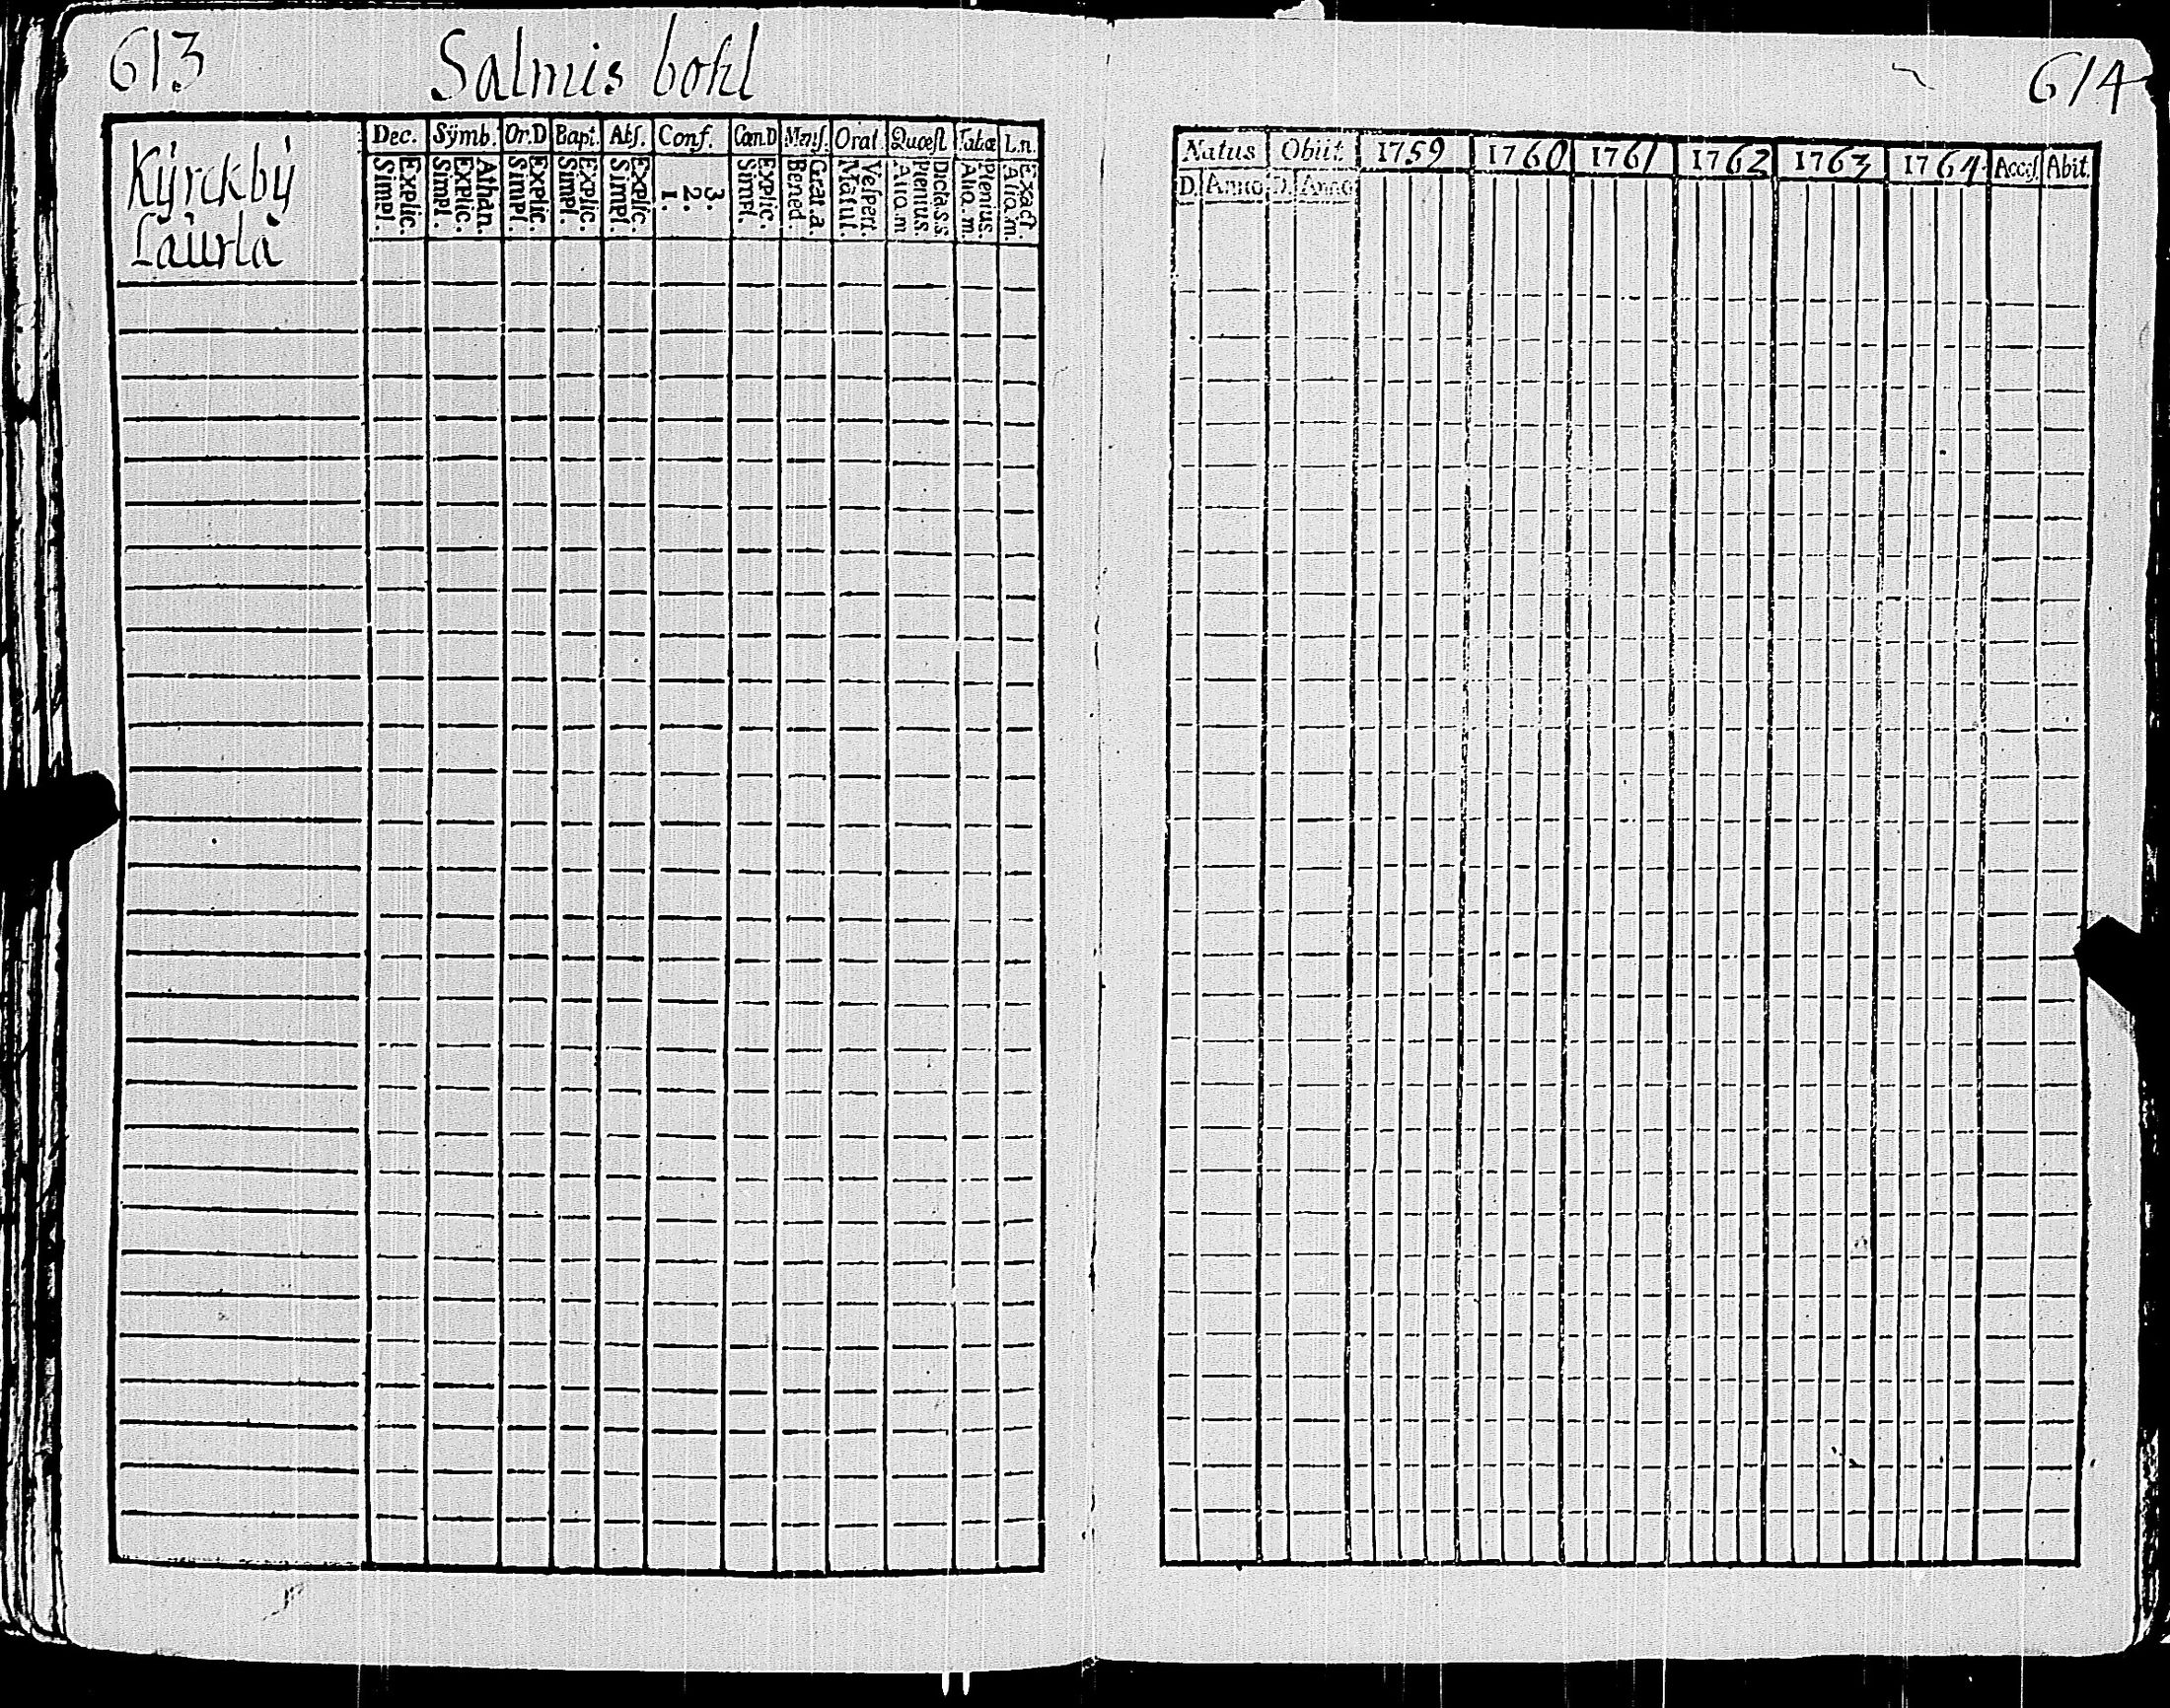 613 Salmis bohl
Kÿrckbÿ
Laurla
Dec. Sÿmb. Or.D Bapt. Abs. Conf. Cœn.D Mens. Orat. Quæst. Tabæ L.n.
Simpl. Explic. Simpl. Explic. Athan. Simpl. Explic. Simpl. Explic. Simpl. Explic. 1. 2. 3. Simpl. Explic. Bened. Grat.a Matut. Vespert. Aliq.m Plenius. Dicta.s.s. Aliq.m. Plenius. Aliq.m. Exact.
614
Natus Obiit. 1759 1760 1761 1762 1763 1764 Access. Abit.
D. Anno D. Anno